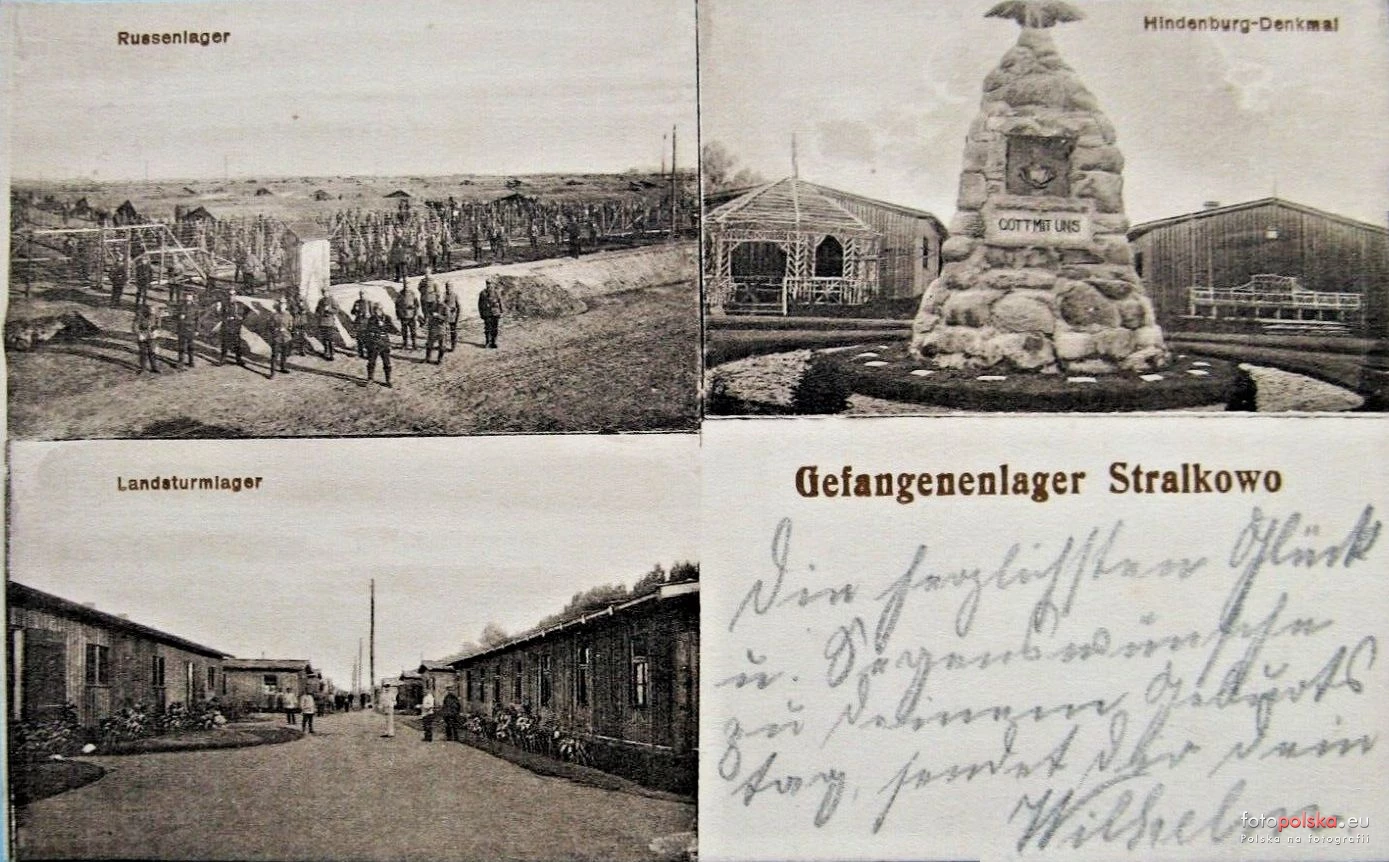 Russenlager
Hindenburg-Denkmal
GOTT MIT UNS
Landsturmlager
Gefangenenlager Stralkowo
Die herzlichsten Glück
u. Segenswünsche
zu deinem Geburts
tag, sendet dir dein
Wilhelm
fotopolska.eu
Polska na fotografii